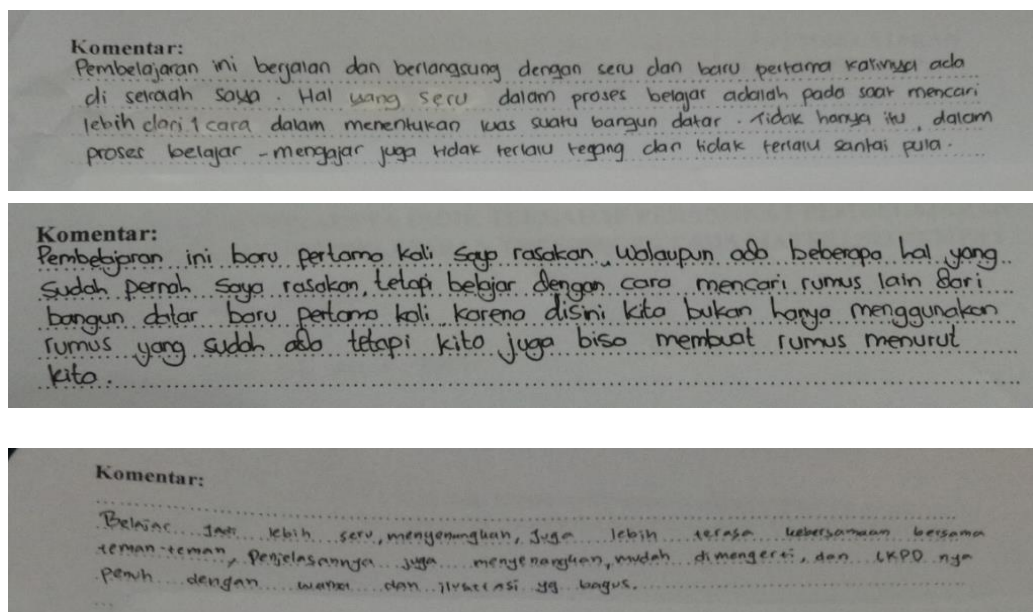 Komentar:
Pembelajaran ini berjalan dan berlangsung dengan seru dan baru pertama kalinya ada
di sekolah saya. Hal yang seru dalam proses belajar adalah pada saat mencari
lebih dari 1 cara dalam menentukan luas suatu bangun datar. Tidak hanya itu, dalam
proses belajar-mengajar juga tidak terlalu tegang dan tidak terlalu santai pula.
Komentar:
Pembelajaran ini baru pertama kali saya rasakan, walaupun ada beberapa hal yang
sudah pernah saya rasakan, tetapi belajar dengan cara mencari rumus lain dari
bangun datar baru pertama kali. Karena disini kita bukan hanya menggunakan
rumus yang sudah ada tetapi kita juga bisa membuat rumus menurut
kita.
Komentar:
Belajar jadi lebih seru, menyenangkan, juga lebih terasa kebersamaan bersama
teman-teman, Penjelasannya juga menyenangkan, mudah dimengerti, dan LKPD nya
penuh dengan warna dan ilustrasi yg bagus.